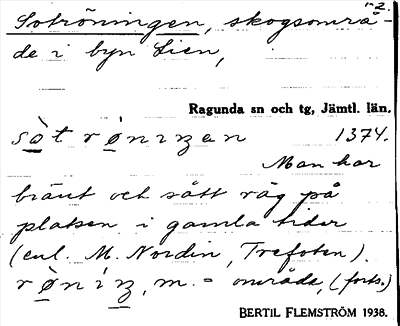 r 2.
Sotröningen, skogsområ-
de i byn Lien,
Ragunda sn och tg, Jämtl. län.
sòt rǿnıŋen 1374.
Man har
bränt och sått råg på
platsen i gamla tider
(enl. M. Nordin, Trefoten).
rǿnıŋ, m. = område, (forts.)
BERTIL FLEMSTRÖM 1938.